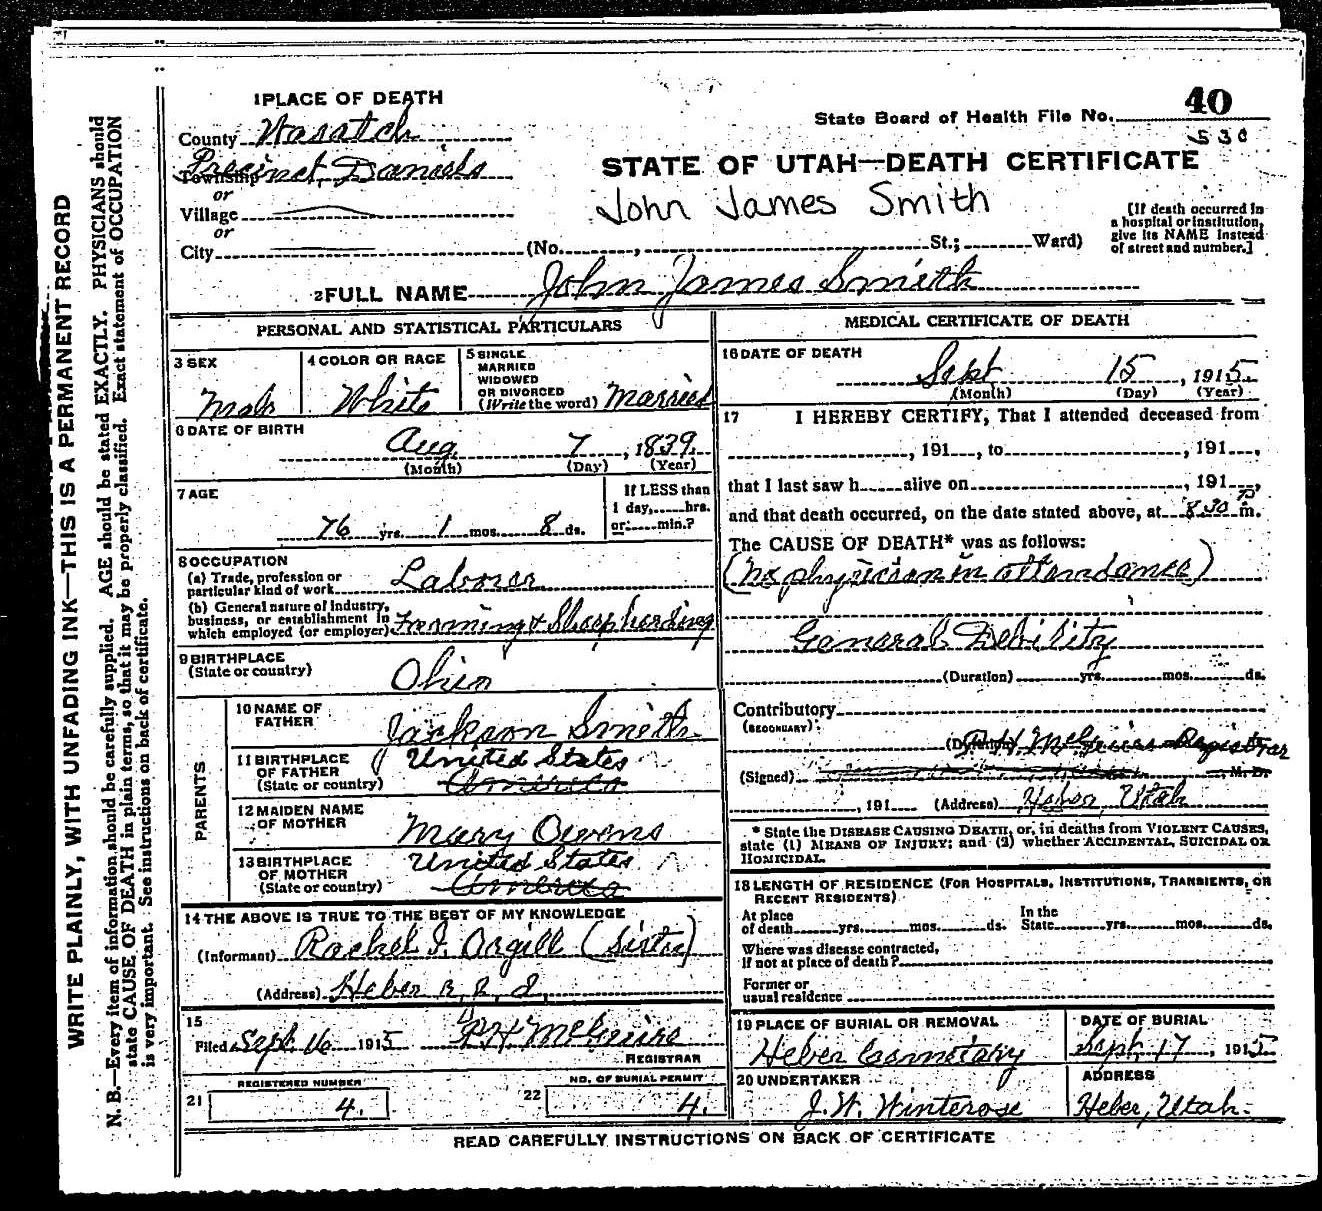 1 PLACE OF DEATH
County Wasatch
State Board of Health File No. 40
530
Township Precinct Daniels
or
Village
or
City
STATE OF UTAH—DEATH CERTIFICATE
John James Smith
(No. , St.; Ward)
[If death occurred in
a hospital or institution,
give its NAME instead
of street and number.]
2 FULL NAME John James Smith
PERSONAL AND STATISTICAL PARTICULARS
3 SEX
Male
4 COLOR OR RACE
White
5 SINGLE
MARRIED
WIDOWED
OR DIVORCED
(Write the word) Married
6 DATE OF BIRTH
Aug. 7, 1839
(Month) (Day) (Year)
7 AGE
76 yrs. 1 mos. 8 ds.
If LESS than
1 day, hrs.
or min.?
8 OCCUPATION
(a) Trade, profession or
particular kind of work Laborer
(b) General nature of Industry,
business, or establishment in
which employed (or employer) Farming & Sheepherding
9 BIRTHPLACE
(State or country) Ohio
PARENTS
10 NAME OF
FATHER Jackson Smith
11 BIRTHPLACE
OF FATHER
(State or country) United States
America
12 MAIDEN NAME
OF MOTHER Mary Owens
13 BIRTHPLACE
OF MOTHER
(State or country) United States
America
14 THE ABOVE IS TRUE TO THE BEST OF MY KNOWLEDGE
(Informant) Rachel I. Orgill (Sister)
(Address) Heber R. R. 2,
15
Filed Sept. 16 1915
REGISTRAR
REGISTERED NUMBER
21 4.
NO. OF BURIAL PERMIT
22 4.
MEDICAL CERTIFICATE OF DEATH
16 DATE OF DEATH
Sept 15, 1915
(Month) (Day) (Year)
17 I HEREBY CERTIFY, That I attended deceased from
, 191 , to , 191 ,
that I last saw h alive on , 191 ,
and that death occurred, on the date stated above, at 8 30 P m.
The CAUSE OF DEATH* was as follows:
(No physician in attendance)
General Debility
(Duration) yrs. mos. ds.
Contributory
(SECONDARY)
Registrar
(Signed) M. D.
, 191 (Address) Heber, Utah
* State the DISEASE CAUSING DEATH, or, in deaths from VIOLENT CAUSES,
state (1) MEANS OF INJURY; and (2) whether ACCIDENTAL, SUICIDAL OR
HOMICIDAL.
18 LENGTH OF RESIDENCE (FOR HOSPITALS, INSTITUTIONS, TRANSIENTS, OR
RECENT RESIDENTS)
At place
of death yrs. mos. ds.
In the
State yrs. mos. ds.
Where was disease contracted,
If not at place of death?
Former or
usual residence
19 PLACE OF BURIAL OR REMOVAL
Heber Cemetary
DATE OF BURIAL
Sept. 17, 1915
20 UNDERTAKER
J. W. Winterose
ADDRESS
Heber, Utah.
READ CAREFULLY INSTRUCTIONS ON BACK OF CERTIFICATE
WRITE PLAINLY, WITH UNFADING INK—THIS IS A PERMANENT RECORD
N. B.—Every item of information should be carefully supplied. AGE should be stated EXACTLY. PHYSICIANS should
state CAUSE OF DEATH in plain terms, so that it may be properly classified. Exact statement of OCCUPATION
is very important. See instructions on back of certificate.